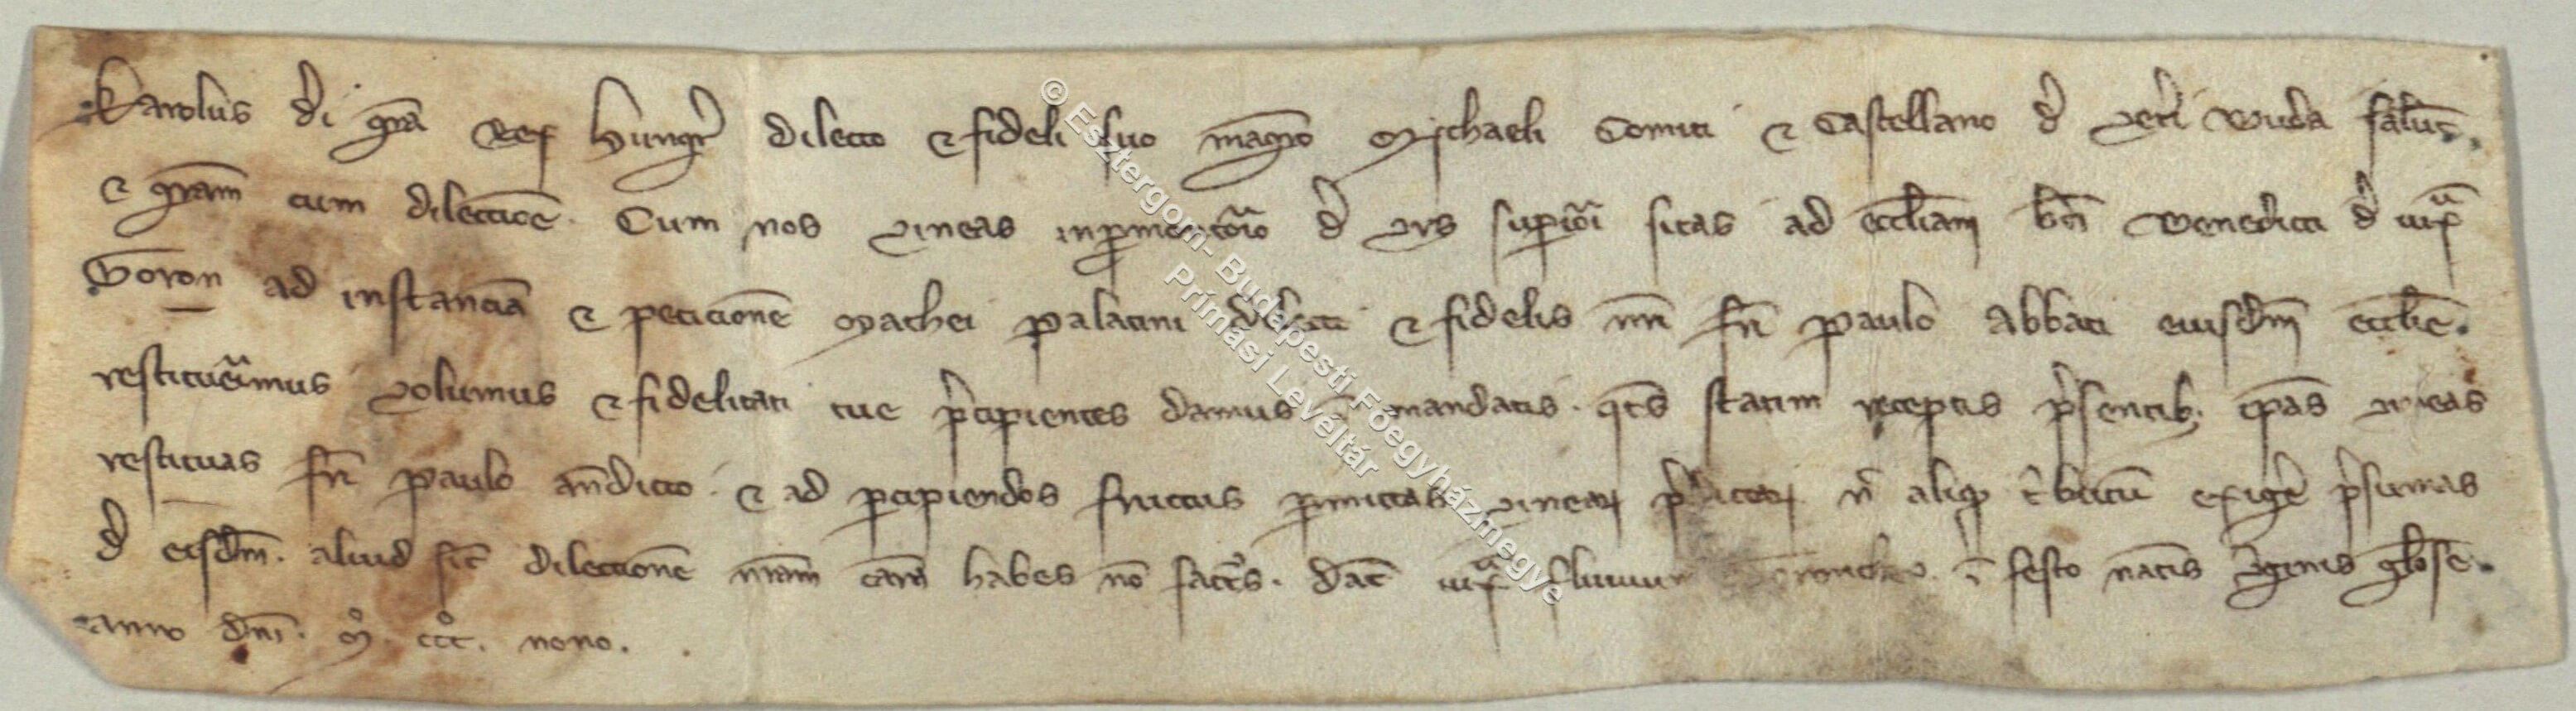 Karolus di gra Rex Hungr dilecto et fideli suo magro Mychaeli Comiti et Castellano d veti Buda salut
et gram cum dileccione. Cum nos vineas in prmontorio d Vrs superiori sitas ad eccliam bti Benedicti d iuxa
Goron ad instancia et peticione Mathei palatini dilecti et fidelis nri fri paulo Abbati eiusdm ecclie.
restituerimus volumus et fidelitati tue prcipientes damus in mandatis. qts statim receptis prsentib. ipas vineas
restituas fri paulo andicto. et ad pcipiendos fructus pmittas vinear prdictar n aliqd tributu exigere prsumas
d eisdm. aliud sic dileccione nram cara habes no facts. Dat iuxa fluuium in festo natis Virginis gliose.
anno dni. mo. ccco. nono.
© Esztergom- Budapesti Főegyházmegye
Prímási Levéltár